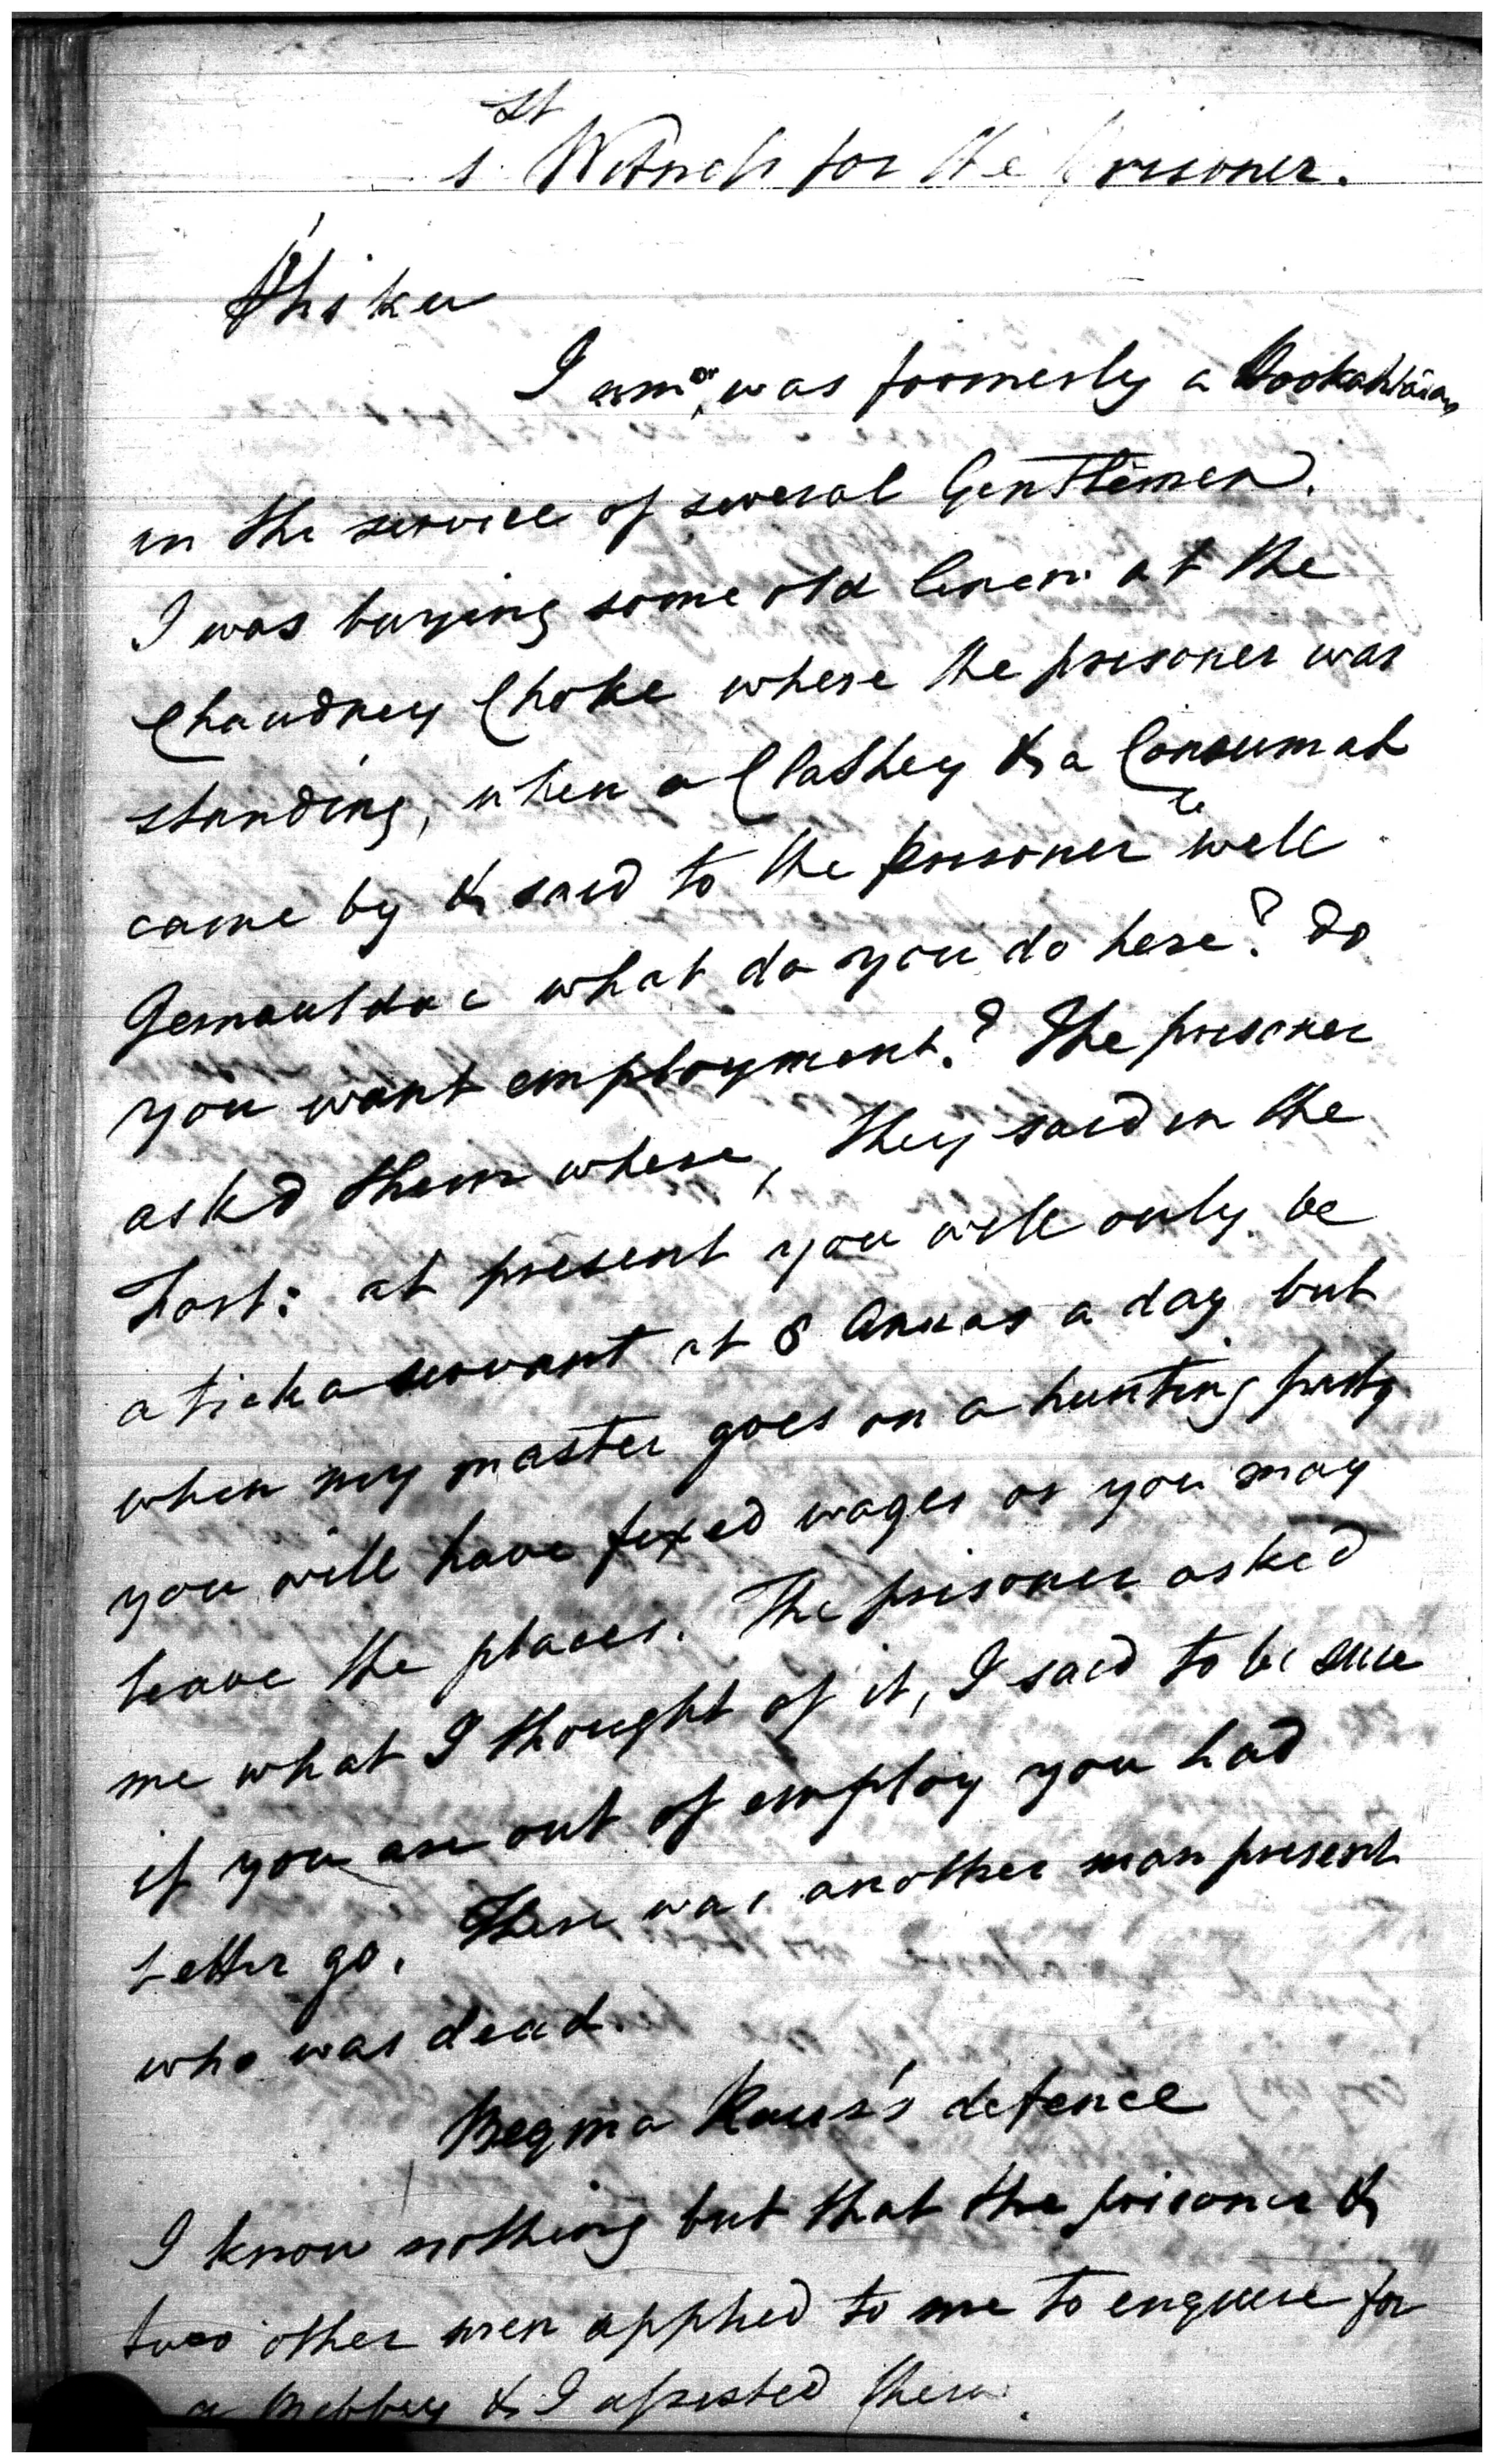 1st Witness for the Prisoner.
Shiku
I am or was formerly a
in the service of several Gentlemen.
I was buying some old linen at the
Chaudney Choke where the prisoner was
standing, when a Clashey & a Consumah
came by & said to the prisoner well
Gemautdar what do you do here? do
you want employment? The prisoner
askd them where, they said in the
Fort: at present you will only be
a ticka servant at 8 Annas a day but
when my master goes on a hunting party
you will have fixed wages or you may
leave the places. The prisoner asked
me what I thought of it, I said to be sure
if you are out of employ you had
better go. There was another man present
who was dead.
Begma Rauss's defence
I know nothing but that the prisoner &
two other men applied to me to enquire for
a & I assisted them.